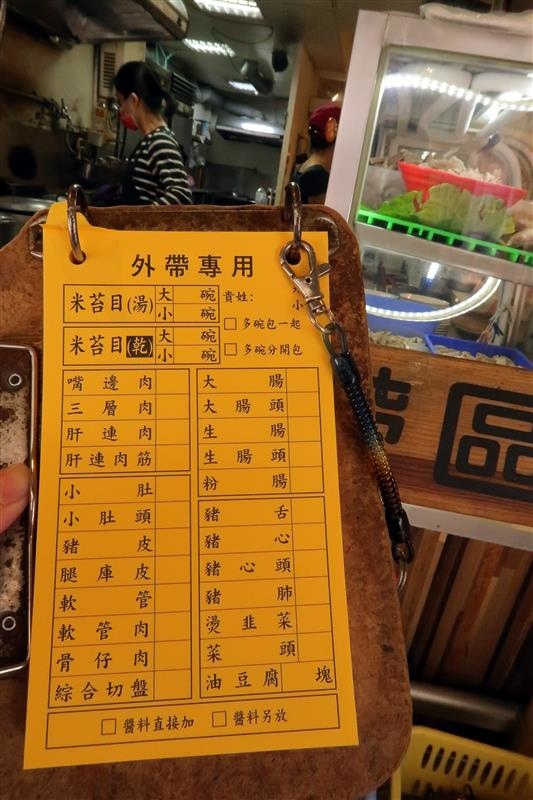 外帶專用
米苔目(湯) 大 碗 貴姓:
小 碗 小
米苔目(乾) 大 碗 □ 多碗包一起
小 碗 □ 多碗分開包
嘴邊肉 大腸
三層肉 大腸頭
肝連肉 生腸
肝連肉筋 生腸頭
小肚 粉腸
小肚頭 豬舌
豬皮 豬心
腿庫皮 豬心頭
軟管 豬肺
軟管肉 燙韭菜
骨仔肉 菜頭
綜合切盤 油豆腐 塊
□ 醬料直接加 □ 醬料另放
區